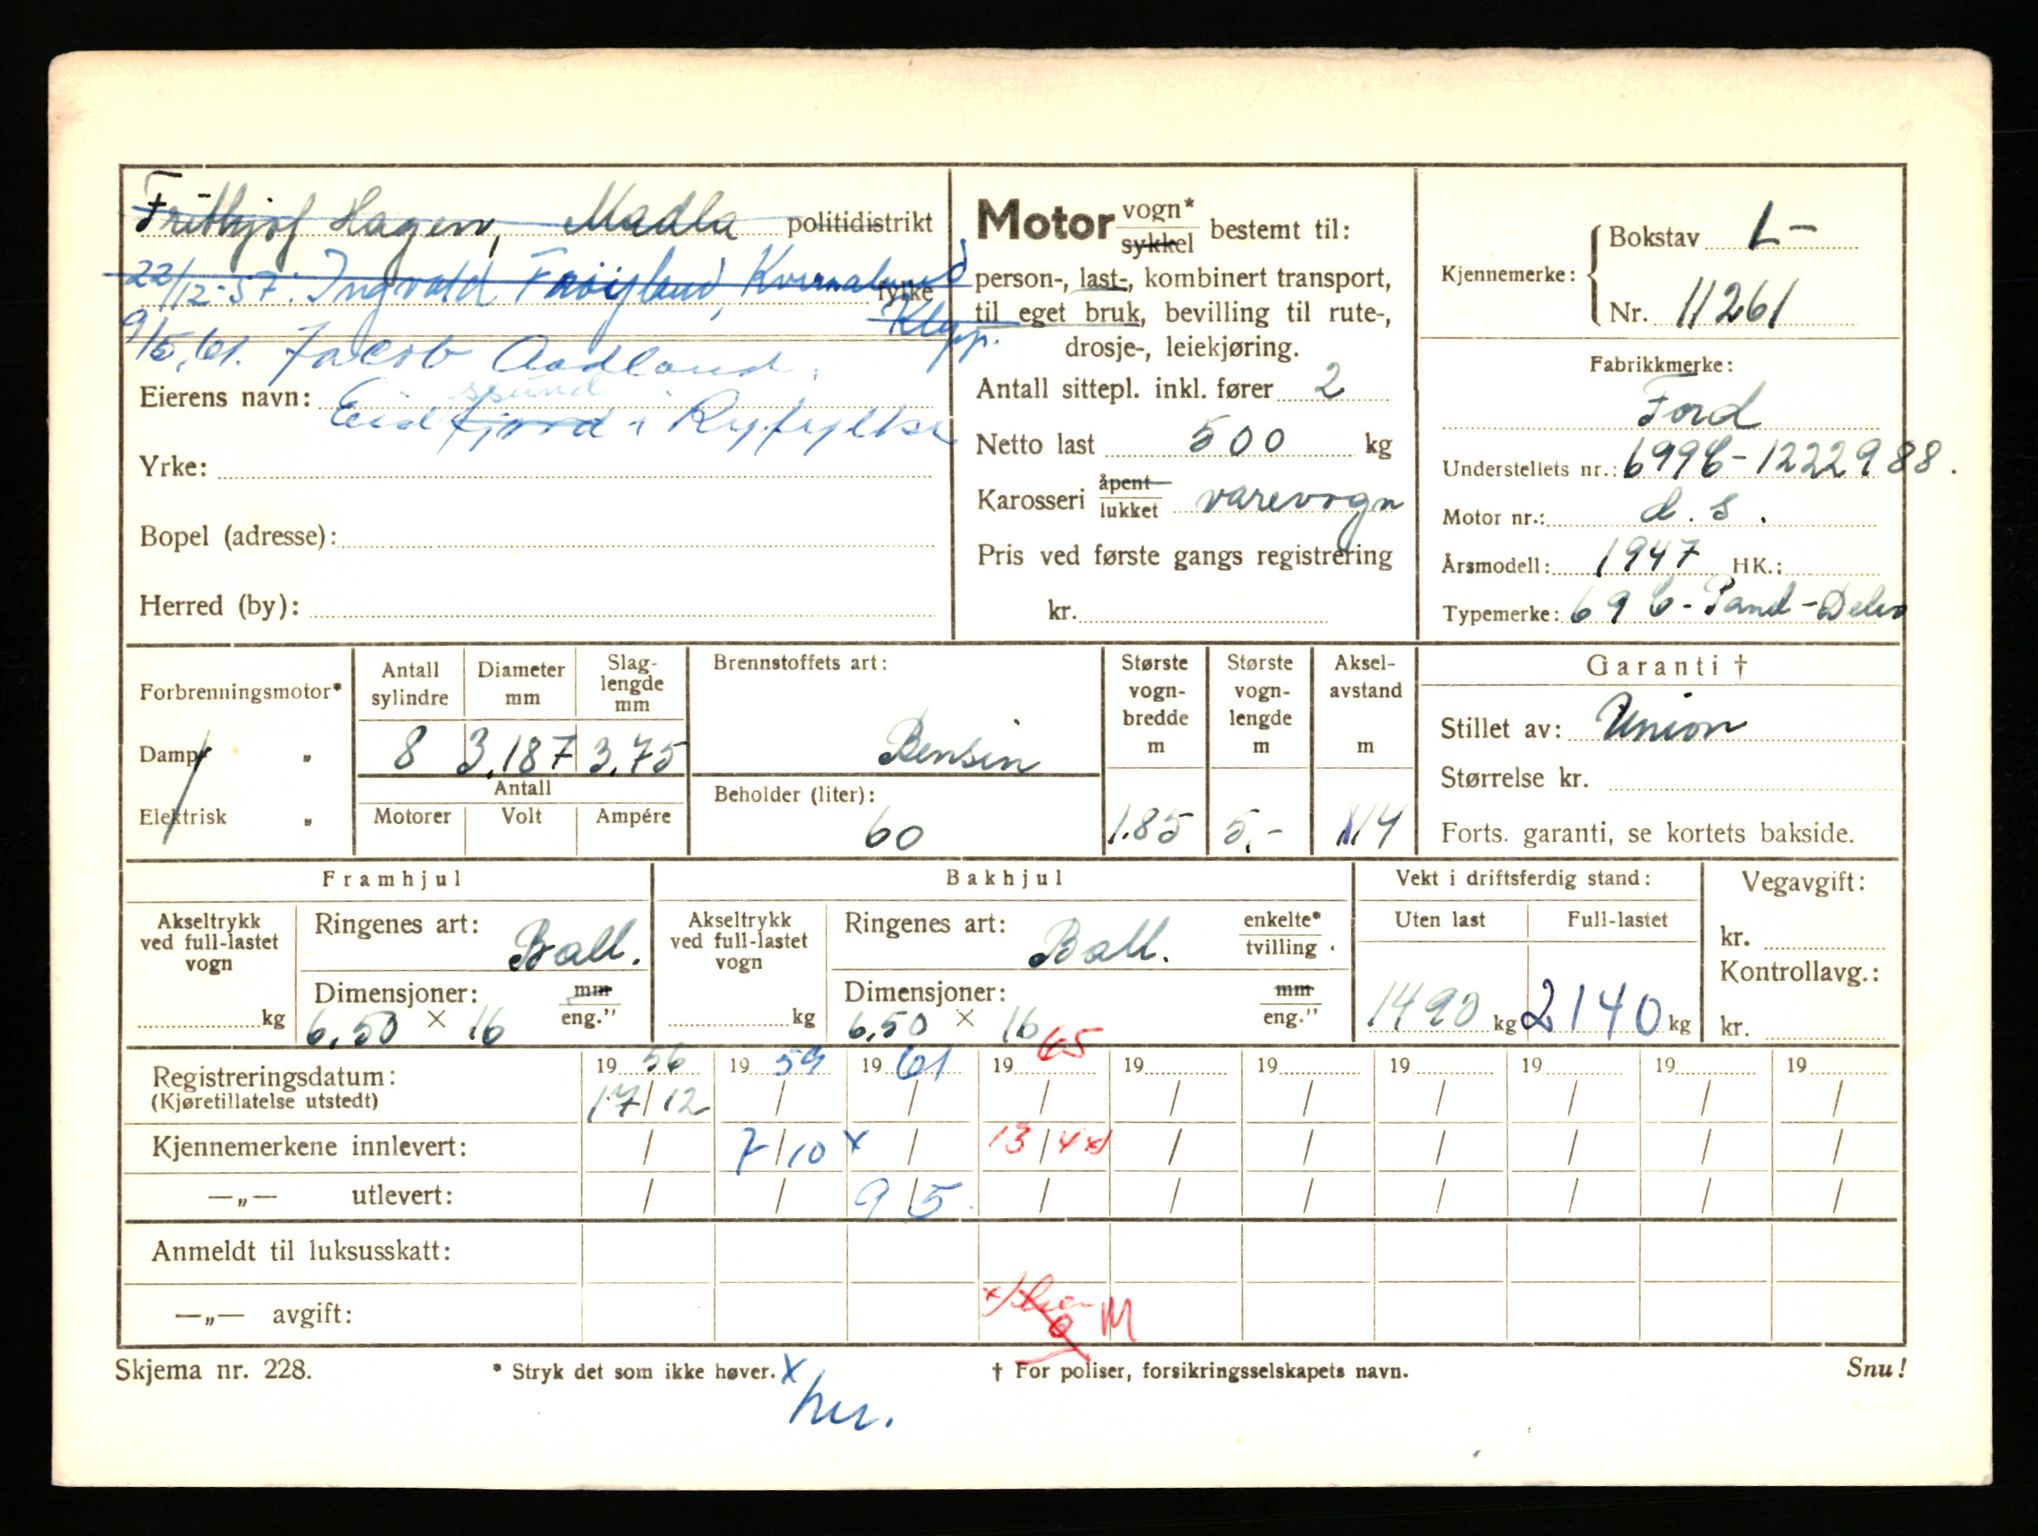 Frithjof Hagen, Madla politidistrikt
22/12-57. Ingvald Frøyland, Kvernaland fylke
Klepp.
9/5.61. Jacob Aadland.
Eierens navn: Eidfjord i Ryfylke
ssund
Yrke:
Bopel (adresse):
Herred (by):
Motor vogn* sykkel bestemt til:
person-, last-, kombinert transport,
til eget bruk, bevilling til rute-,
drosje-, leiekjøring.
Antall sittepl. inkl. fører 2
Netto last 500 kg
Karosseri åpent lukket varevogn
Pris ved første gangs registrering
kr.
Kjennemerke: Bokstav L-
Nr. 11261
Fabrikkmerke:
Ford
Understellets nr.: 699C-1222988.
Motor nr.: d. s.
Årsmodell: 1947 HK.:
Typemerke: 69 C - Pand - Delv
Forbrenningsmotor*
Damp- "
Elektrisk "
Antall sylindre
8
Diameter mm
3,187
Slag-lengde mm
3,75
Antall
Motorer Volt Ampére
Brennstoffets art:
Bensin
Beholder (liter):
60
Største vogn-bredde m
1.85
Største vogn-lengde m
5,-
Aksel-avstand m
114
Garanti †
Stillet av: Union
Størrelse kr.
Forts. garanti, se kortets bakside.
Framhjul
Akseltrykk ved full-lastet vogn
kg
Ringenes art: Ball.
Dimensjoner: mm eng."
6,50 × 16
Bakhjul
Akseltrykk ved full-lastet vogn
kg
Ringenes art: Ball. enkelte* tvilling.
Dimensjoner: mm eng."
6,50 × 16
Vekt i driftsferdig stand:
Uten last Full-lastet
1490 kg 2140 kg
Vegavgift:
kr.
Kontrollavg.:
kr.
Registreringsdatum: 1956 1959 1961 1965 19 19 19 19 19 19
(Kjøretillatelse utstedt) 17/12 / / / / / / / / /
Kjennemerkene innlevert: / 7/10 x / 13/4 x) / / / / / /
—„— utlevert: / / 9/5. / / / / / / /
Anmeldt til luksusskatt:
—„— avgift:
x) M
Skjema nr. 228. * Stryk det som ikke høver. x † For poliser, forsikringsselskapets navn. Snu!
her.